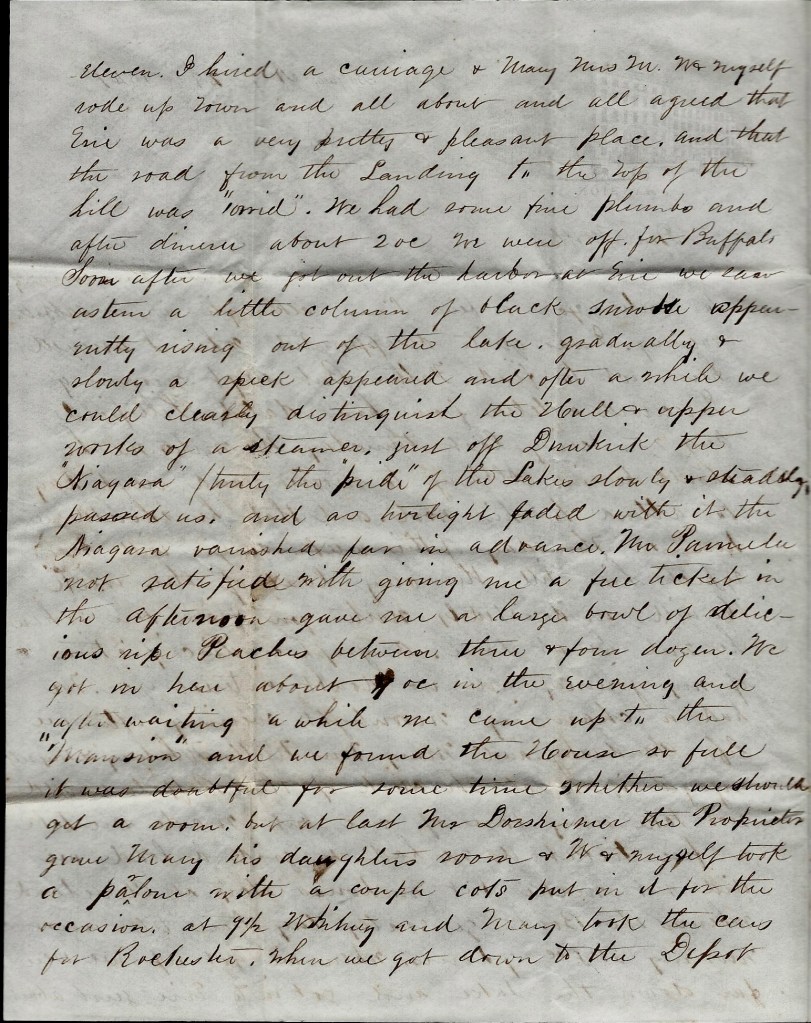 eleven. I hired a carriage & Mary Mrs M. W & myself
rode up town and all about and all agreed that
Erie was a very pretty & pleasant place. and that
the road from the Landing to the top of the
hill was "orrid". We had some fine plumbs and
after dinner about 2 oc we were off for Buffalo
Soon after we got out the harbor at Erie we saw
astern a little column of black smoke appar-
ently rising out of the lake. gradually &
slowly a speck appeared and after a while we
could clearly distinguish the Hull & upper
works of a steamer. just off Dunkirk the
"Niagara" (truly the "pride" of the Lakes slowly & steadily
passed us. and as twilight faded with it the
Niagara vanished far in advance. Mr Parmelee
not satisfied with giving me a free ticket in
the afternoon gave me a large bowl of delic-
ious ripe Peaches between three & four dozen. We
got in here about 9 oc in the evening and
after waiting a while we came up to the
"Mansion" and we found the House so full
it was doubtful for some time whether we should
get a room. but at last Mr Dorshiemer the Proprietor
gave Mary his daughters room & W & myself took
a parlour with a couple cots put in it for the
occasion. at 9½ Whiting and Mary took the cars
for Rochester. When we got down to the Depot